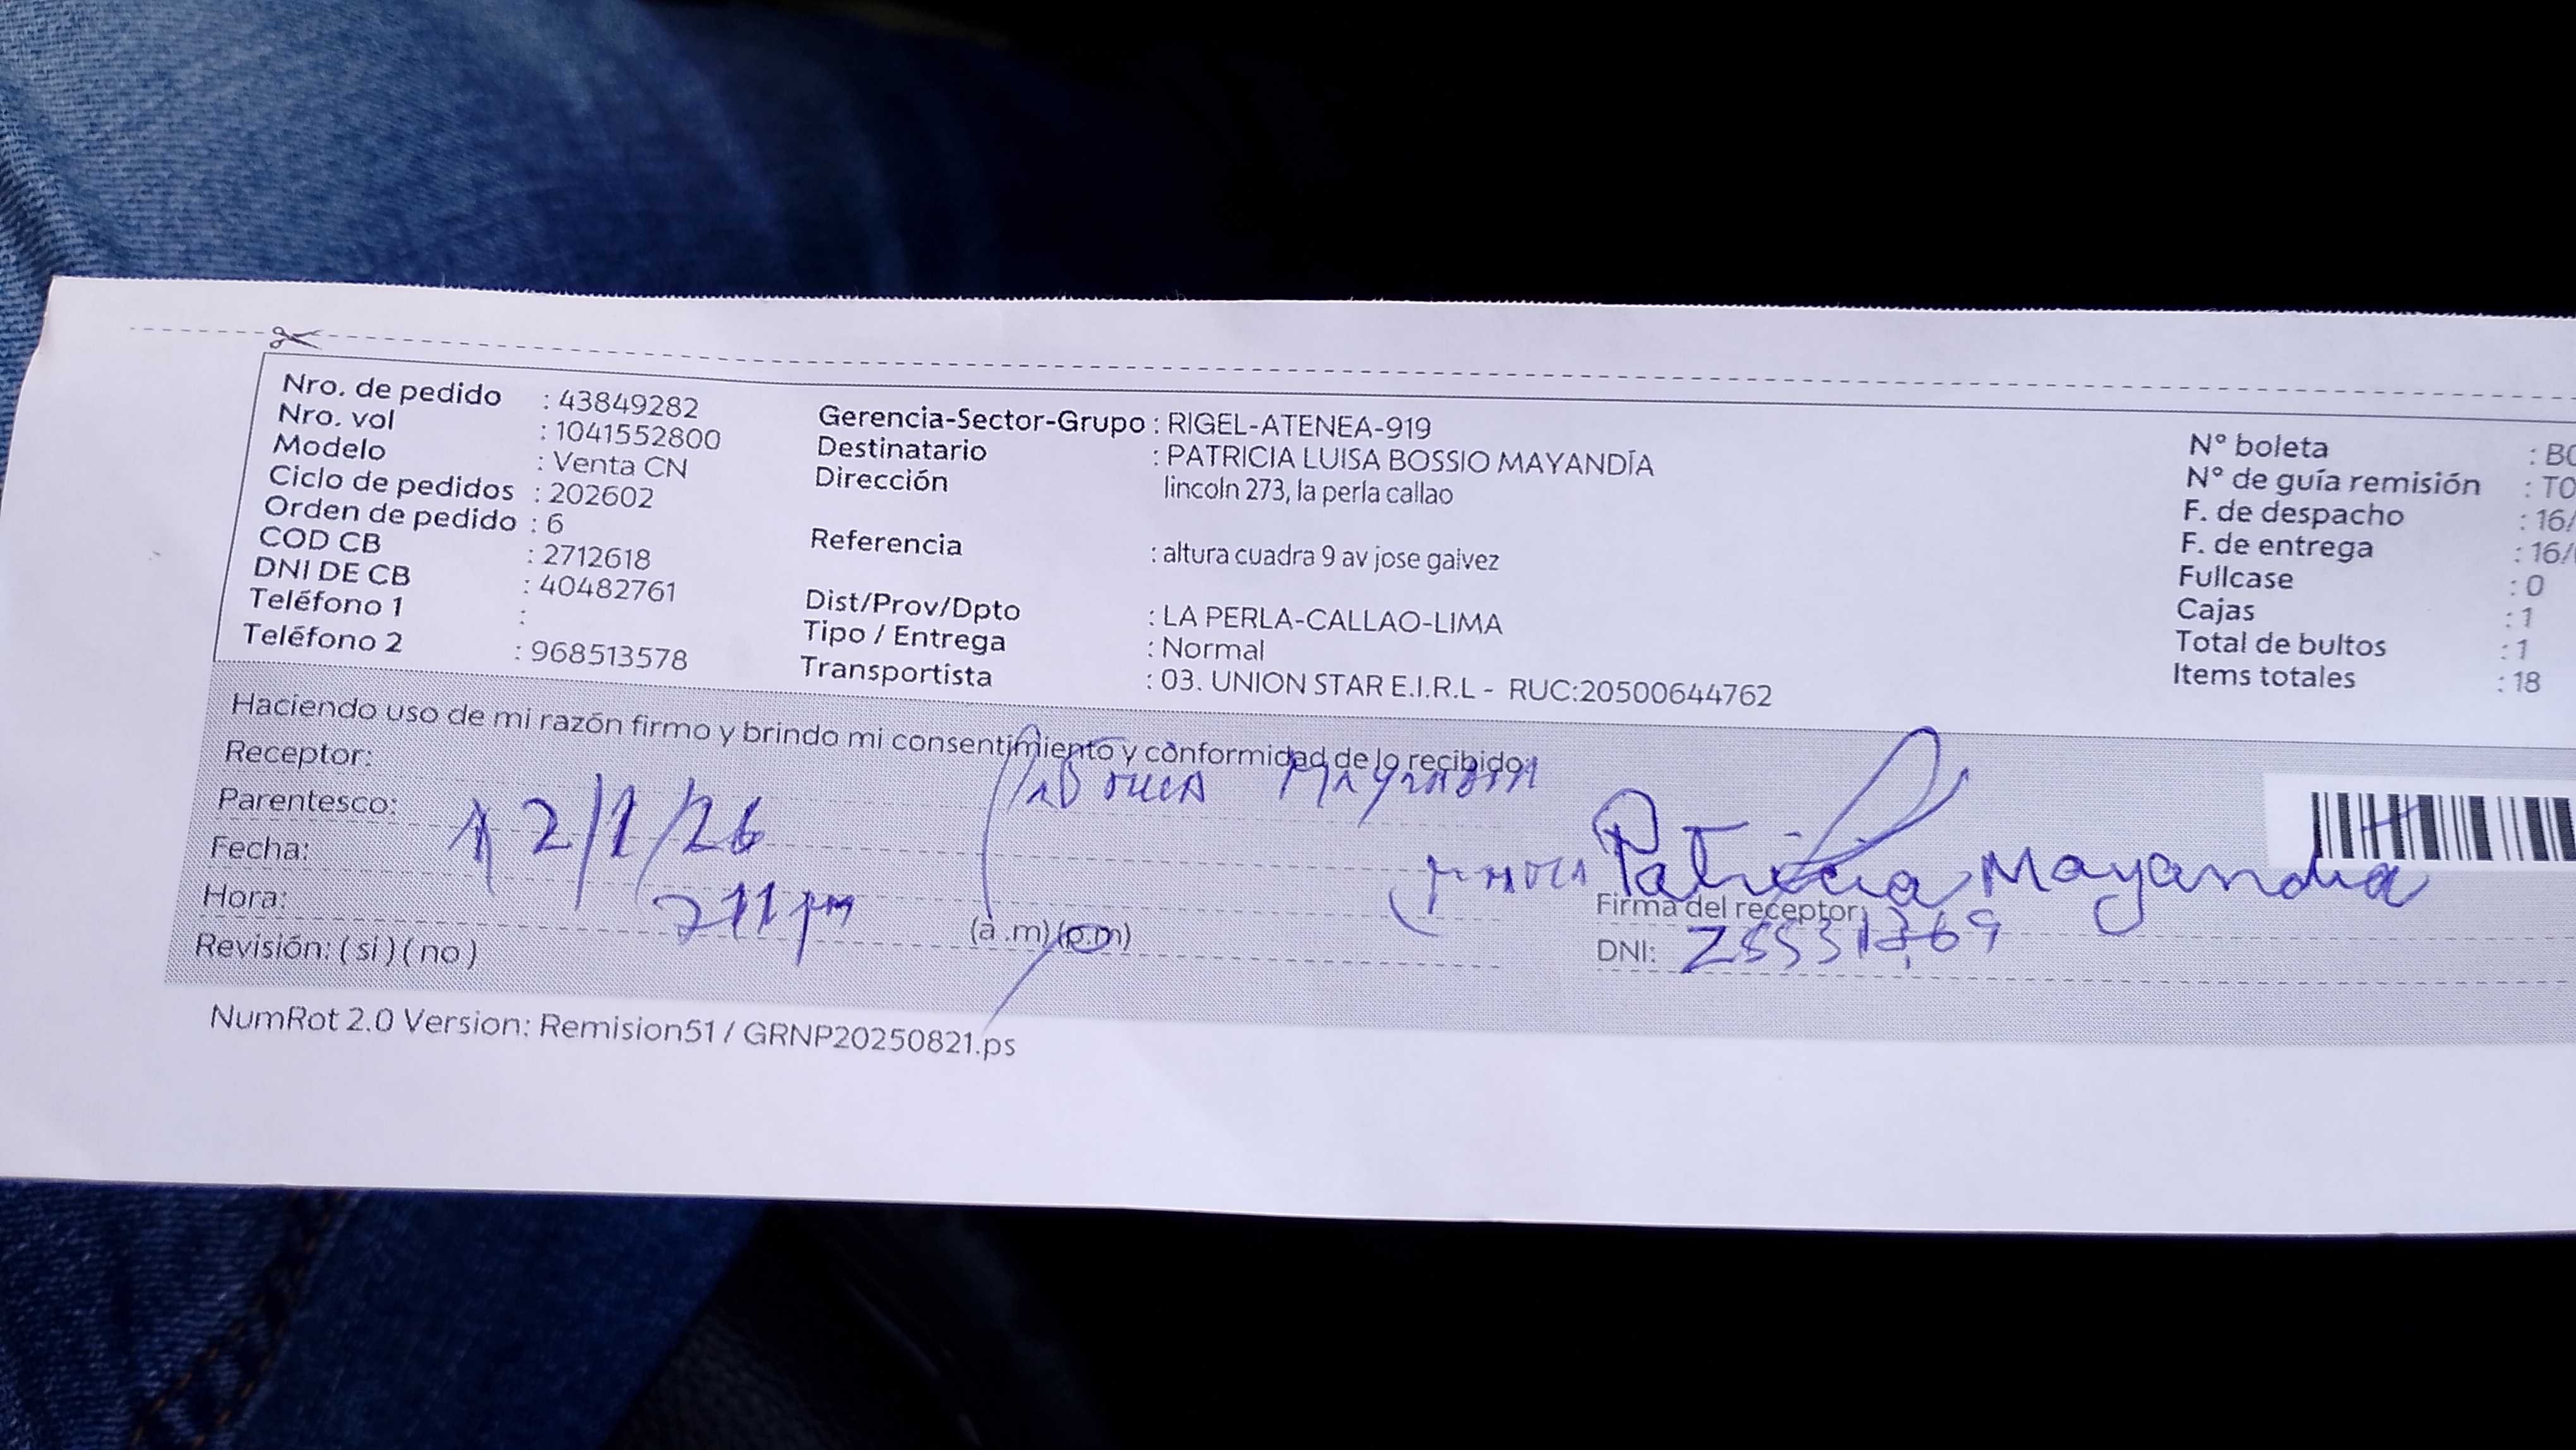 Nro. de pedido : 43849282
Nro. vol : 1041552800
Modelo : Venta CN
Ciclo de pedidos : 202602
Orden de pedido : 6
COD CB : 2712618
DNI DE CB : 40482761
Teléfono 1 :
Teléfono 2 : 968513578
Gerencia-Sector-Grupo : RIGEL-ATENEA-919
Destinatario : PATRICIA LUISA BOSSIO MAYANDÍA
Dirección lincoln 273, la perla callao
Referencia : altura cuadra 9 av jose galvez
Dist/Prov/Dpto : LA PERLA-CALLAO-LIMA
Tipo / Entrega : Normal
Transportista : 03. UNION STAR E.I.R.L - RUC:20500644762
N° boleta : B0
N° de guía remisión : T0
F. de despacho : 16/
F. de entrega : 16/
Fullcase : 0
Cajas : 1
Total de bultos : 1
Items totales : 18
Haciendo uso de mi razón firmo y brindo mi consentimiento y conformidad de lo recibido:
Receptor:
Parentesco:
Fecha: 12/1/26
Hora: 211 pm (a .m) (p.m)
Revisión: ( si ) ( no )
Patricia Mayandia
Firma del receptor:
DNI:
NumRot 2.0 Version: Remision51 / GRNP20250821.ps